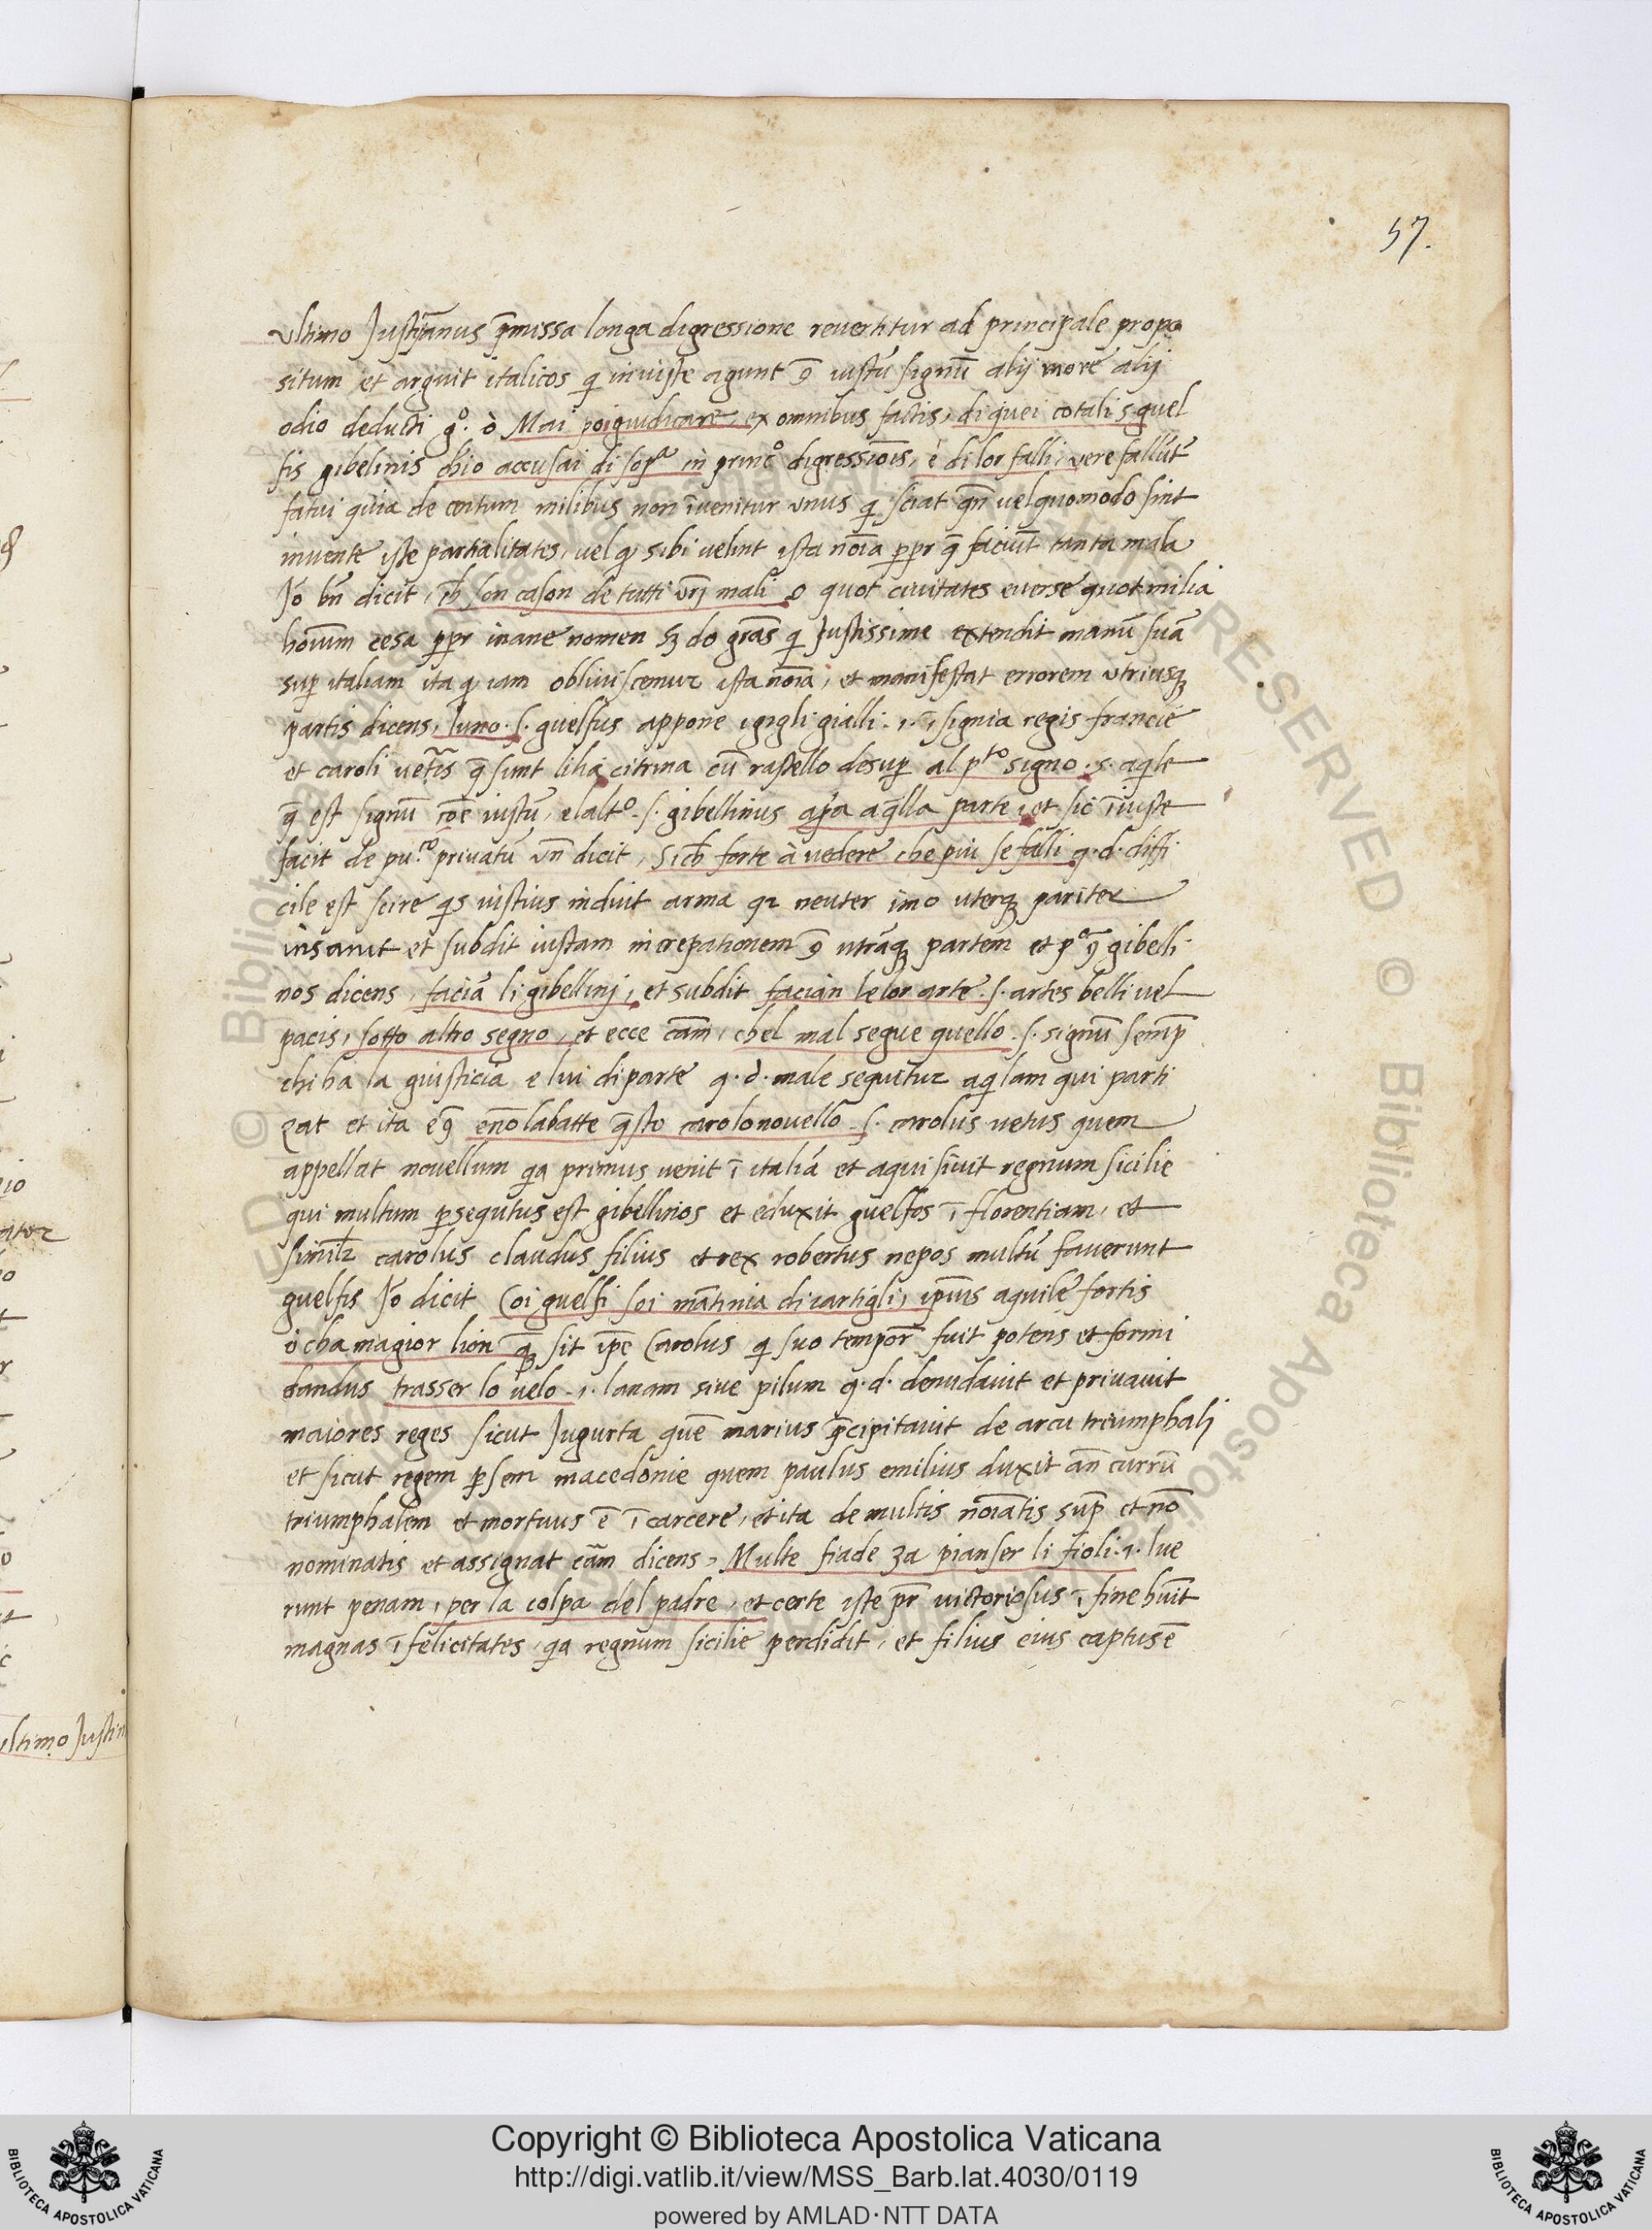 57.
Ultimo Justiānus p̄missa longa digressione revertitur ad principale propo
situm et arguit italicos qi iniuste agunt ꝯ̄ iustū signū alij more alij
odio deducti g°. ò Mai poi guidicare, ex omnibus factis, di quei cotali .s. guel
fis gibelinis chio accusai di sopª in princ° digressiōis, è di lor falli, vere fallūt
fatui quia de centum milibus non īvenitur unus qi sciat qn̄ vel quomodo sint
invente iste partialitates, vel qi sibi velint ista nōīa ꝓpr q̄ faciūt tanta mala
Jō bn̄ dicit, ch̄ son cason de tutti vr̄j mali o quot civitates everse quot milia
hoīum cesa ꝓpr inane nomen sꝫ do grās qi Justissime extendit manū suā
suꝑ italiam ita ꝙ iam obliviscemur ista nōīa, et manifestat errorem utriusqꝫ
partis dicens, luno .s. guelfus appone i gigli gialli .i. īsignia regis francie
et caroli vet̄is q̄ sunt lilia citrina cū rastello desuꝑ al pᵗᵒ signo .s. aqile
q̄ est signū cōe iustū, elaltº .s. gibellinus apꝛa aq̄lla parte, et sic īiuste
facit de puᶜᵒ privatū un̄ dicit, Sich̄ forte à vedere che piu se falli q.d. diffi
cile est scire qis iustius induit arma qꝛ neuter imo uterqꝫ pariter
insanit et subdit iustam increpationem ꝯ̄ utrāqꝫ partem et pº ꝯ̄ gibelli
nos dicens, faciā li gibellinj, et subdit facian le lor arte .s. artes belli vel
pacis, sotto altro segno, et ecce cām, chel mal segue quello .s. signū semꝑ
chi ha la giusticia e lui diparte q.d. male sequitur aqilam qui parti
zat et ita ēꝯ̄ enō labatte q̄sto carolo novello .s. carolus vetus quem
appellat novellum qia primus venit ī italiā et aquisivit regnum sicilie
qui multum ꝑsequtus est gibellinos et eduxit guelfos ī florentiam, et
similꝛ carolus claudus filius et rex robertus nepos multū faverunt
guelfis Jō dicit Coi guelfi soi mātinia di iartigli, ip̄ius aquile fortis
ò cha magior lion qªqꝫ sit ip̄e Carolus qi suo tempor̄ fuit potens et formi
dandus trasser lo velo .i. lanam sive pilum q.d. denudavit et privavit
maiores reges sicut Jugurta quē marius p̄cipitavit de arcu triumphalj
et sicut regem ꝑsem macedonie quem paulus emilius duxit an̄ currū
triumphalem et mortuus ē ī carcere, et ita de multis noīatis supª et nō
nominatis et assignat cām dicens, Multe fiade za pianser li fioli .i. lue
runt penam, per la colpa del padre, et certe iste pr̄ victoriosus ī fine hūit
magnas ī felicitates, qia regnum sicilie perdidit, et filius eius captus ē
ultimo Justin
Copyright © Biblioteca Apostolica Vaticana
http://digi.vatlib.it/view/MSS_Barb.lat.4030/0119
powered by AMLAD·NTT DATA